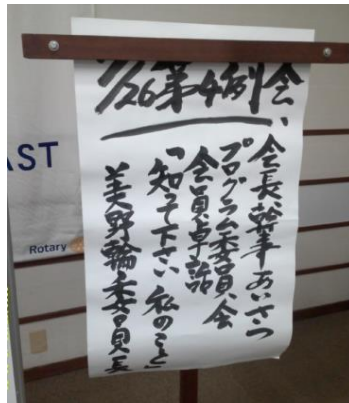 /26第4例会、
会長幹事あいさつ
プログラム委員会
会員卓話
「知って下さい 私のこと」
美野輪委員長
AST
Rotary